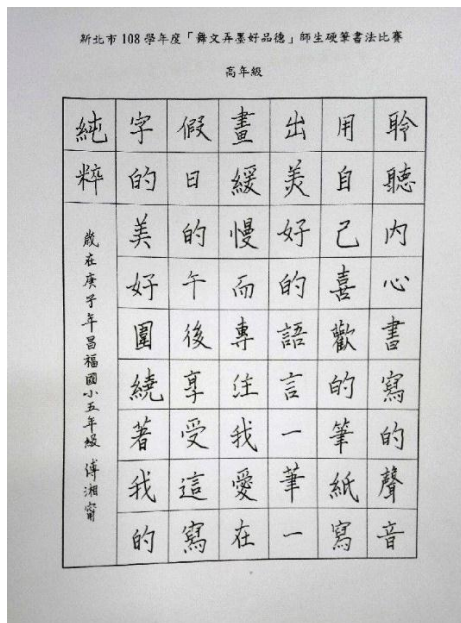 新北市 108 學年度「舞文弄墨好品德」師生硬筆書法比賽
高年級
聆聽內心書寫的聲音
用自己喜歡的筆紙寫
出美好的語言一筆一
畫緩慢而專注我愛在
假日的午後享受這寫
字的美好圍繞著我的
純粹
歲在庚子年昌福國小五年級 傅湘甯